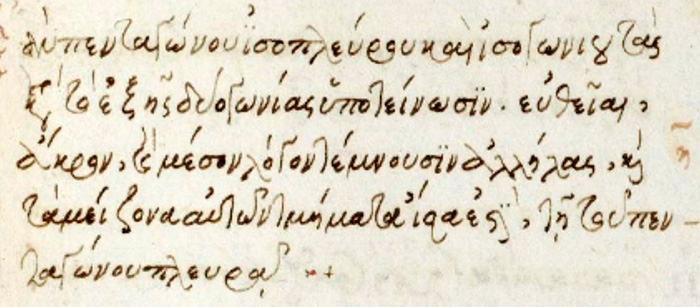 ὰν πενταγώνου ϊσοπλεύρου καὶ ἰσογωνίου τὰς
κατὰ τὸ ἑξῆς δύο γωνίας ὑποτείνωσϊν · εὐθεῖαι,
ἄκρον, καὶ μέσον λόγον τέμνουσϊν ἀλλήλας, καὶ
τὰ μείζονα αὐτῶν τμήματα ἴσα ἐστὶ, τῇ τοῦ πεν-
ταγώνου πλευρᾷ ··+